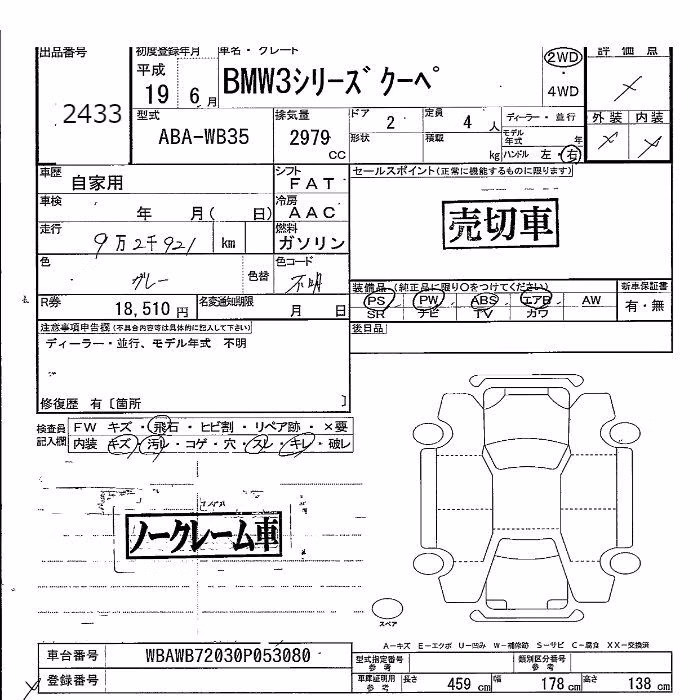 出品番号 初度登録年月 車名・グレード 評価点
平成 2WD
19 6月 BMW3シリーズ クーペ ・
2433 4WD
型式 排気量 ドア 2 定員 4人 ディーラー・並行 外装 内装
ABA-WB35 2979 cc 形状 積載 kg モデル年式 年
ハンドル 左・右
車歴 自家用 シフト FAT セールスポイント(正常に機能するものに限ります)
車検 年 月( 日) 冷房 AAC
売切車
走行 9万2千921 km 燃料 ガソリン
色 グレー 色替 色コード 不明
装備品 (純正品に限り○をつけてください) 新車保証書
R券 18,510円 名変通知期限 月 日 PS PW ABS エアB AW 有・無
SR ナビ TV カワ
注意事項申告欄(不具合内容等は具体的に記入して下さい) 後日品
ディーラー・並行、モデル年式 不明
修復歴 有〔箇所 〕
検査員記入欄 FW キズ・飛石・ヒビ割・リペア跡・×要
内装 キズ・汚レ・コゲ・穴・スレ・キレ・破レ
ノークレーム車
スペア
A-キズ E-エクボ U-凹み W-補修跡 S-サビ C-腐食 XX-交換済
車台番号 WBAWB72030P053080 型式指定番号 参考 類別区分番号 参考
登録番号 車庫証明用 参考 長さ 459 cm 幅 178 cm 高さ 138 cm